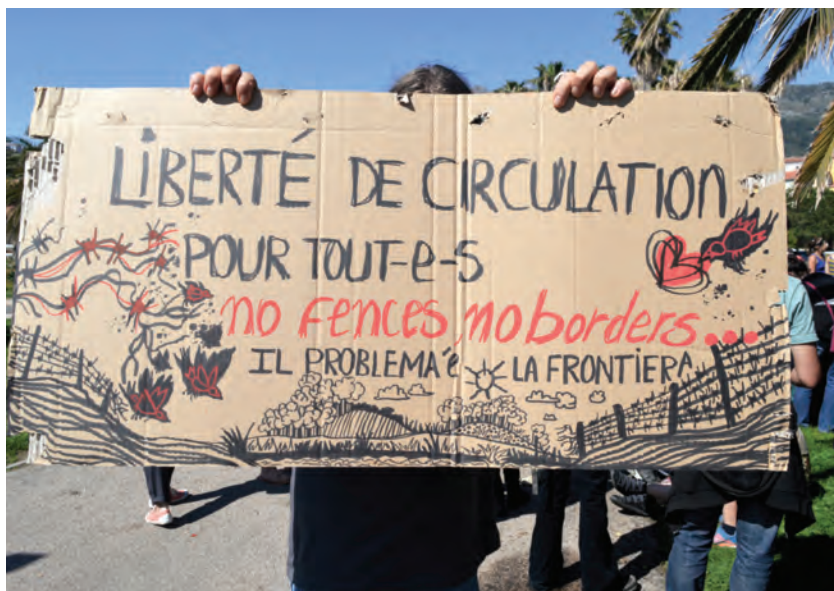 LIBERTÉ DE CIRCULATION
POUR TOUT-e-S
no fences, no borders...
IL PROBLEMA È LA FRONTIERA